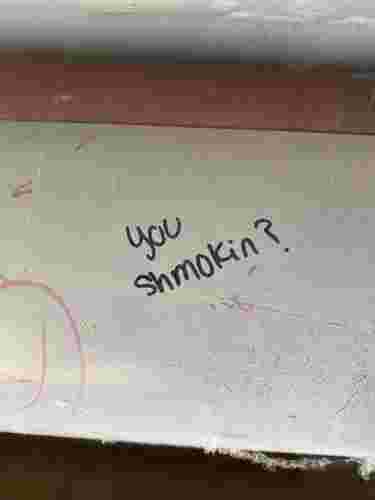 you
shmokin?